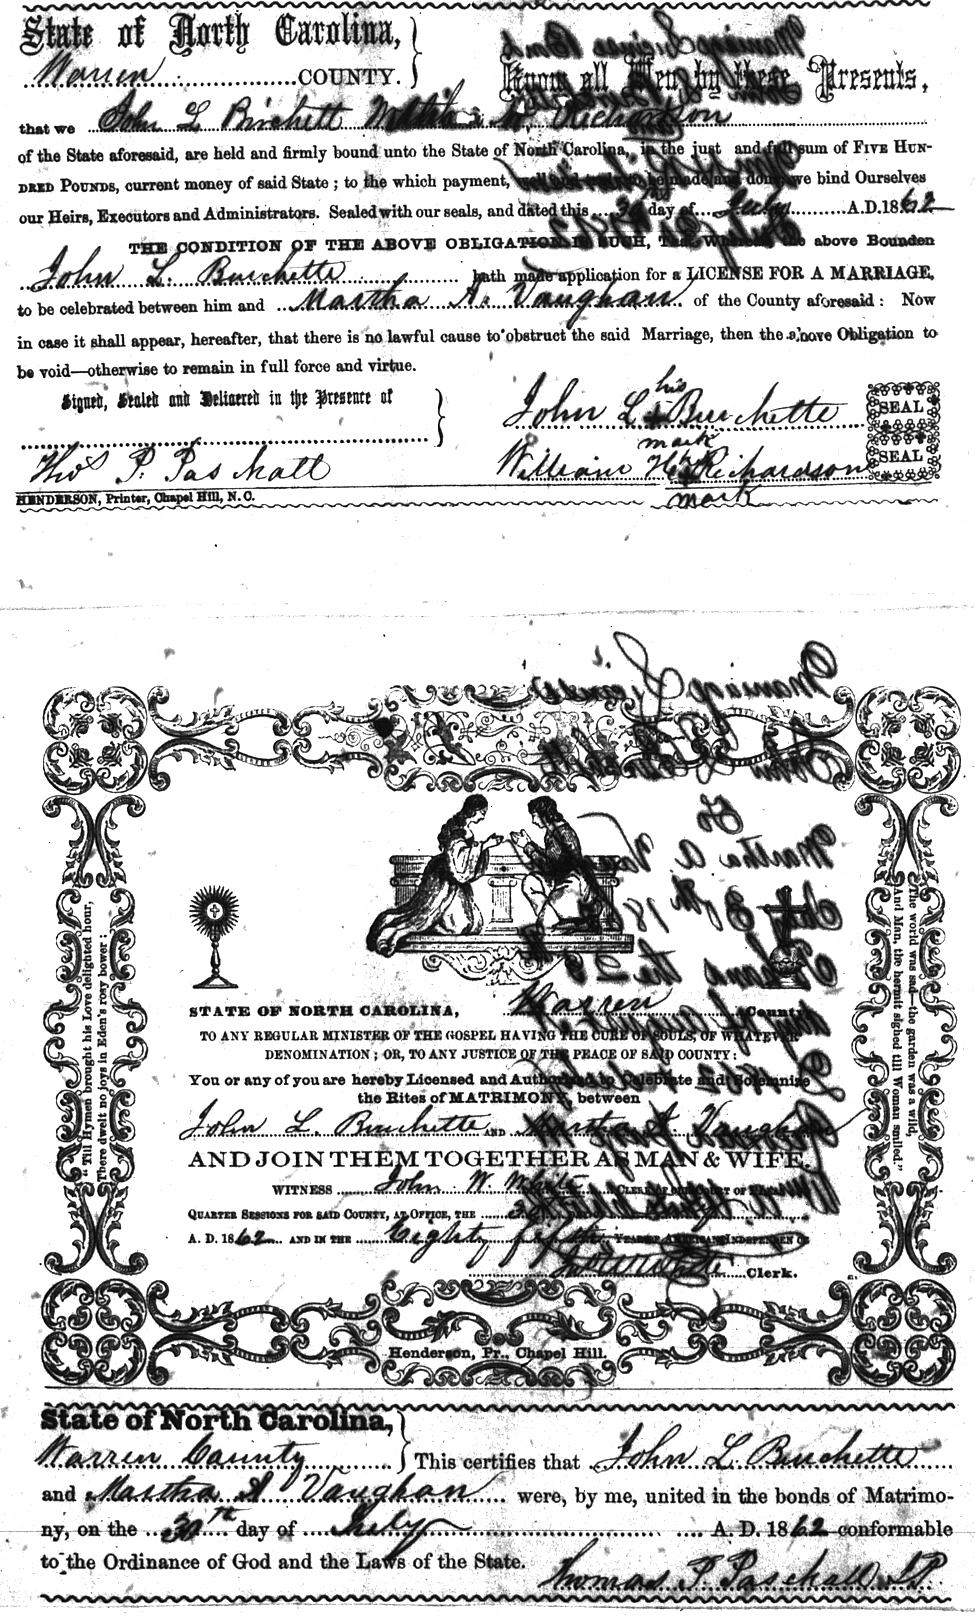 State of North Carolina,
Warren COUNTY.
Know all Men by these Presents,
that we John L Birchett W Richardson
of the State aforesaid, are held and firmly bound unto the State of North Carolina, in the just and full sum of FIVE HUN-
DRED POUNDS, current money of said State ; to the which payment, well and truly to be made and done, we bind Ourselves
our Heirs, Executors and Administrators. Sealed with our seals, and dated this 30 day of July A.D. 1862
THE CONDITION OF THE ABOVE OBLIGATION IS SUCH, That Whereas the above Bounden
John L. Burchette hath made application for a LICENSE FOR A MARRIAGE,
to be celebrated between him and Martha A. Vaughan of the County aforesaid : Now
in case it shall appear, hereafter, that there is no lawful cause to obstruct the said Marriage, then the above Obligation to
be void—otherwise to remain in full force and virtue.
Signed, Sealed and Delivered in the Presence of
his
John L + Burchette SEAL
mark
Thos P. Paschall
William H + Richardson SEAL
mark
HENDERSON, Printer, Chapel Hill, N. C.
"Till Hymen brought his Love delighted hour,
There dwelt no joys in Eden's rosy bower :
The world was sad—the garden was a wild,
And Man, the hermit sighed till Woman smiled."
STATE OF NORTH CAROLINA, Warren County
TO ANY REGULAR MINISTER OF THE GOSPEL HAVING THE CURE OF SOULS, OF WHATEVER
DENOMINATION ; OR, TO ANY JUSTICE OF THE PEACE OF SAID COUNTY :
You or any of you are hereby Licensed and Authorized to Celebrate and Solemnize
the Rites of MATRIMONY, between
John L. Burchette AND Martha A. Vaughan
AND JOIN THEM TOGETHER AS MAN & WIFE.
WITNESS John W. White CLERK OF OUR COURT OF PLEAS
QUARTER SESSIONS FOR SAID COUNTY, AT OFFICE, THE
A. D. 1862 AND IN THE Eighty YEAR OF AMERICAN INDEPENDENCE
Clerk.
Henderson, Pr., Chapel Hill.
State of North Carolina,
Warren County This certifies that John L. Burchette
and Martha A Vaughan were, by me, united in the bonds of Matrimo-
ny, on the 30th day of July A. D. 1862 conformable
to the Ordinance of God and the Laws of the State.
Thomas P Paschall JP